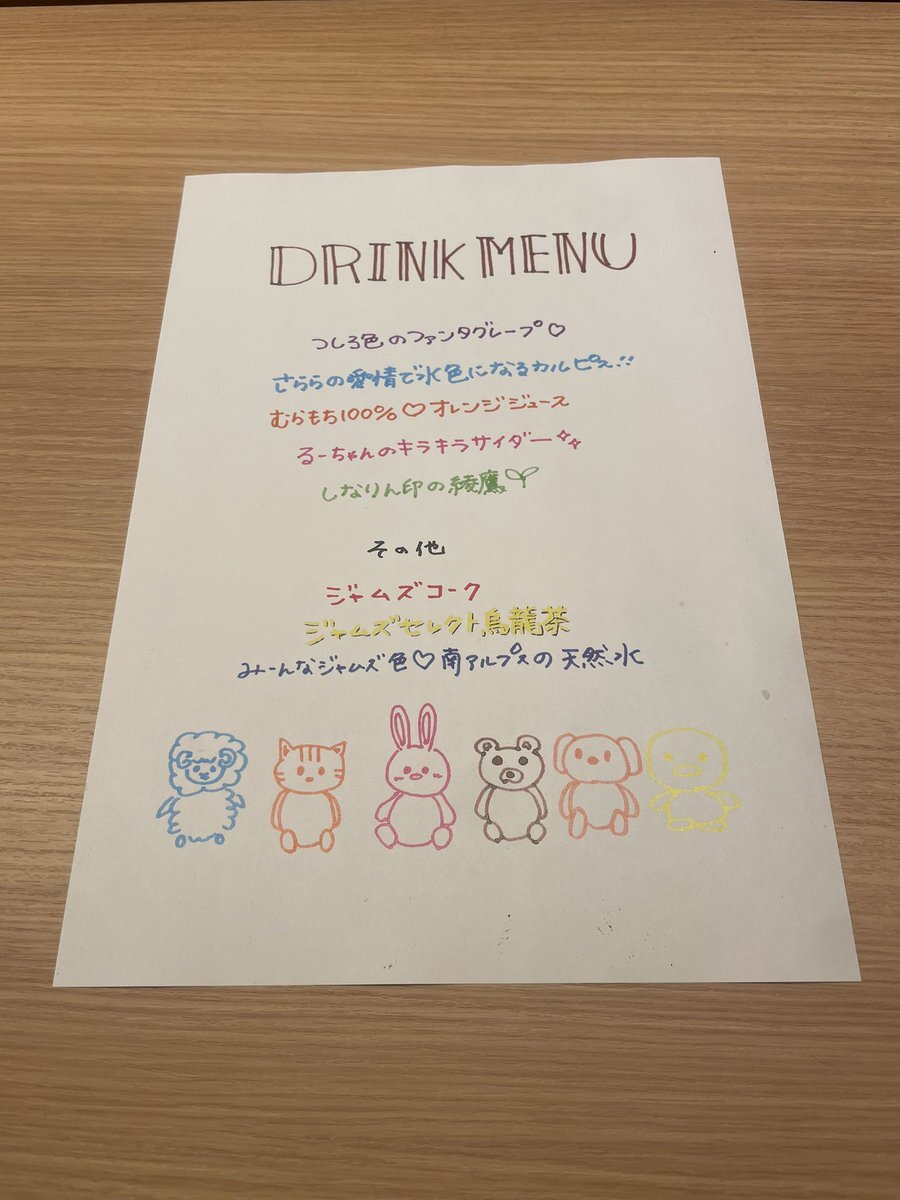 DRINK MENU
つしろ色のファンタグレープ♡
さららの愛情で水色になるカルピス!!
むらもち100%♡オレンジジュース
るーちゃんのキラキラサイダー✨
しなりん印の綾鷹🌱
その他
ジャムズコーク
ジャムズセレクト烏龍茶
みーんなジャムズ色♡南アルプスの天然水